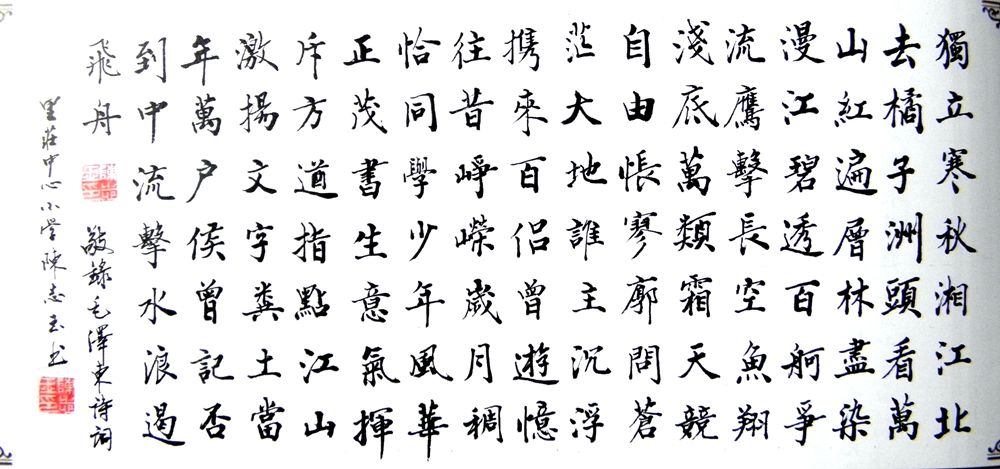 獨立寒秋湘江北
去橘子洲頭看萬
山紅遍層林盡染
漫江碧透百舸爭
流鷹擊長空魚翔
淺底萬類霜天競
自由悵寥廓問蒼
茫大地誰主沉浮
携來百侶曾遊憶
往昔崢嶸歲月稠
恰同學少年風華
正茂書生意氣揮
斥方遒指點江山
激揚文字糞土當
年萬户侯曾記否
到中流擊水浪遏
飛舟 敬錄毛澤東詩詞
里莊中心小学陳志玉书